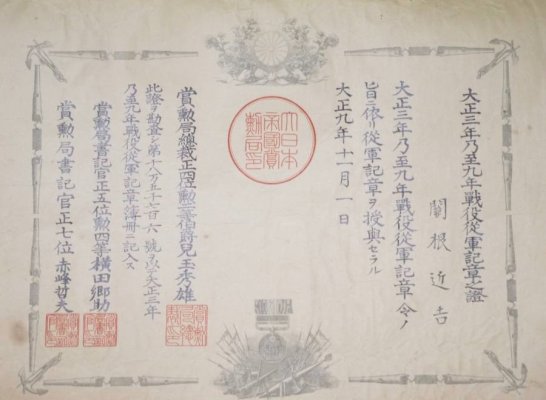 大正三年乃至九年戰役從軍記章之證
關根近吉
大正三年乃至九年戰役從軍記章令ノ
旨ニ依リ從軍記章ヲ授與セラル
大正九年十一月一日
大日本
帝國賞
勲局印
賞勲局總裁正四位勲二等伯爵兒玉秀雄
此證ヲ勘査シ第十八万五千七百六號ヲ以テ大正三年
乃至九年戰役從軍記章簿冊ニ記入ス
賞勲局書記官正五位勲四等横田郷助
賞勲局書記官正七位赤峰哲夫